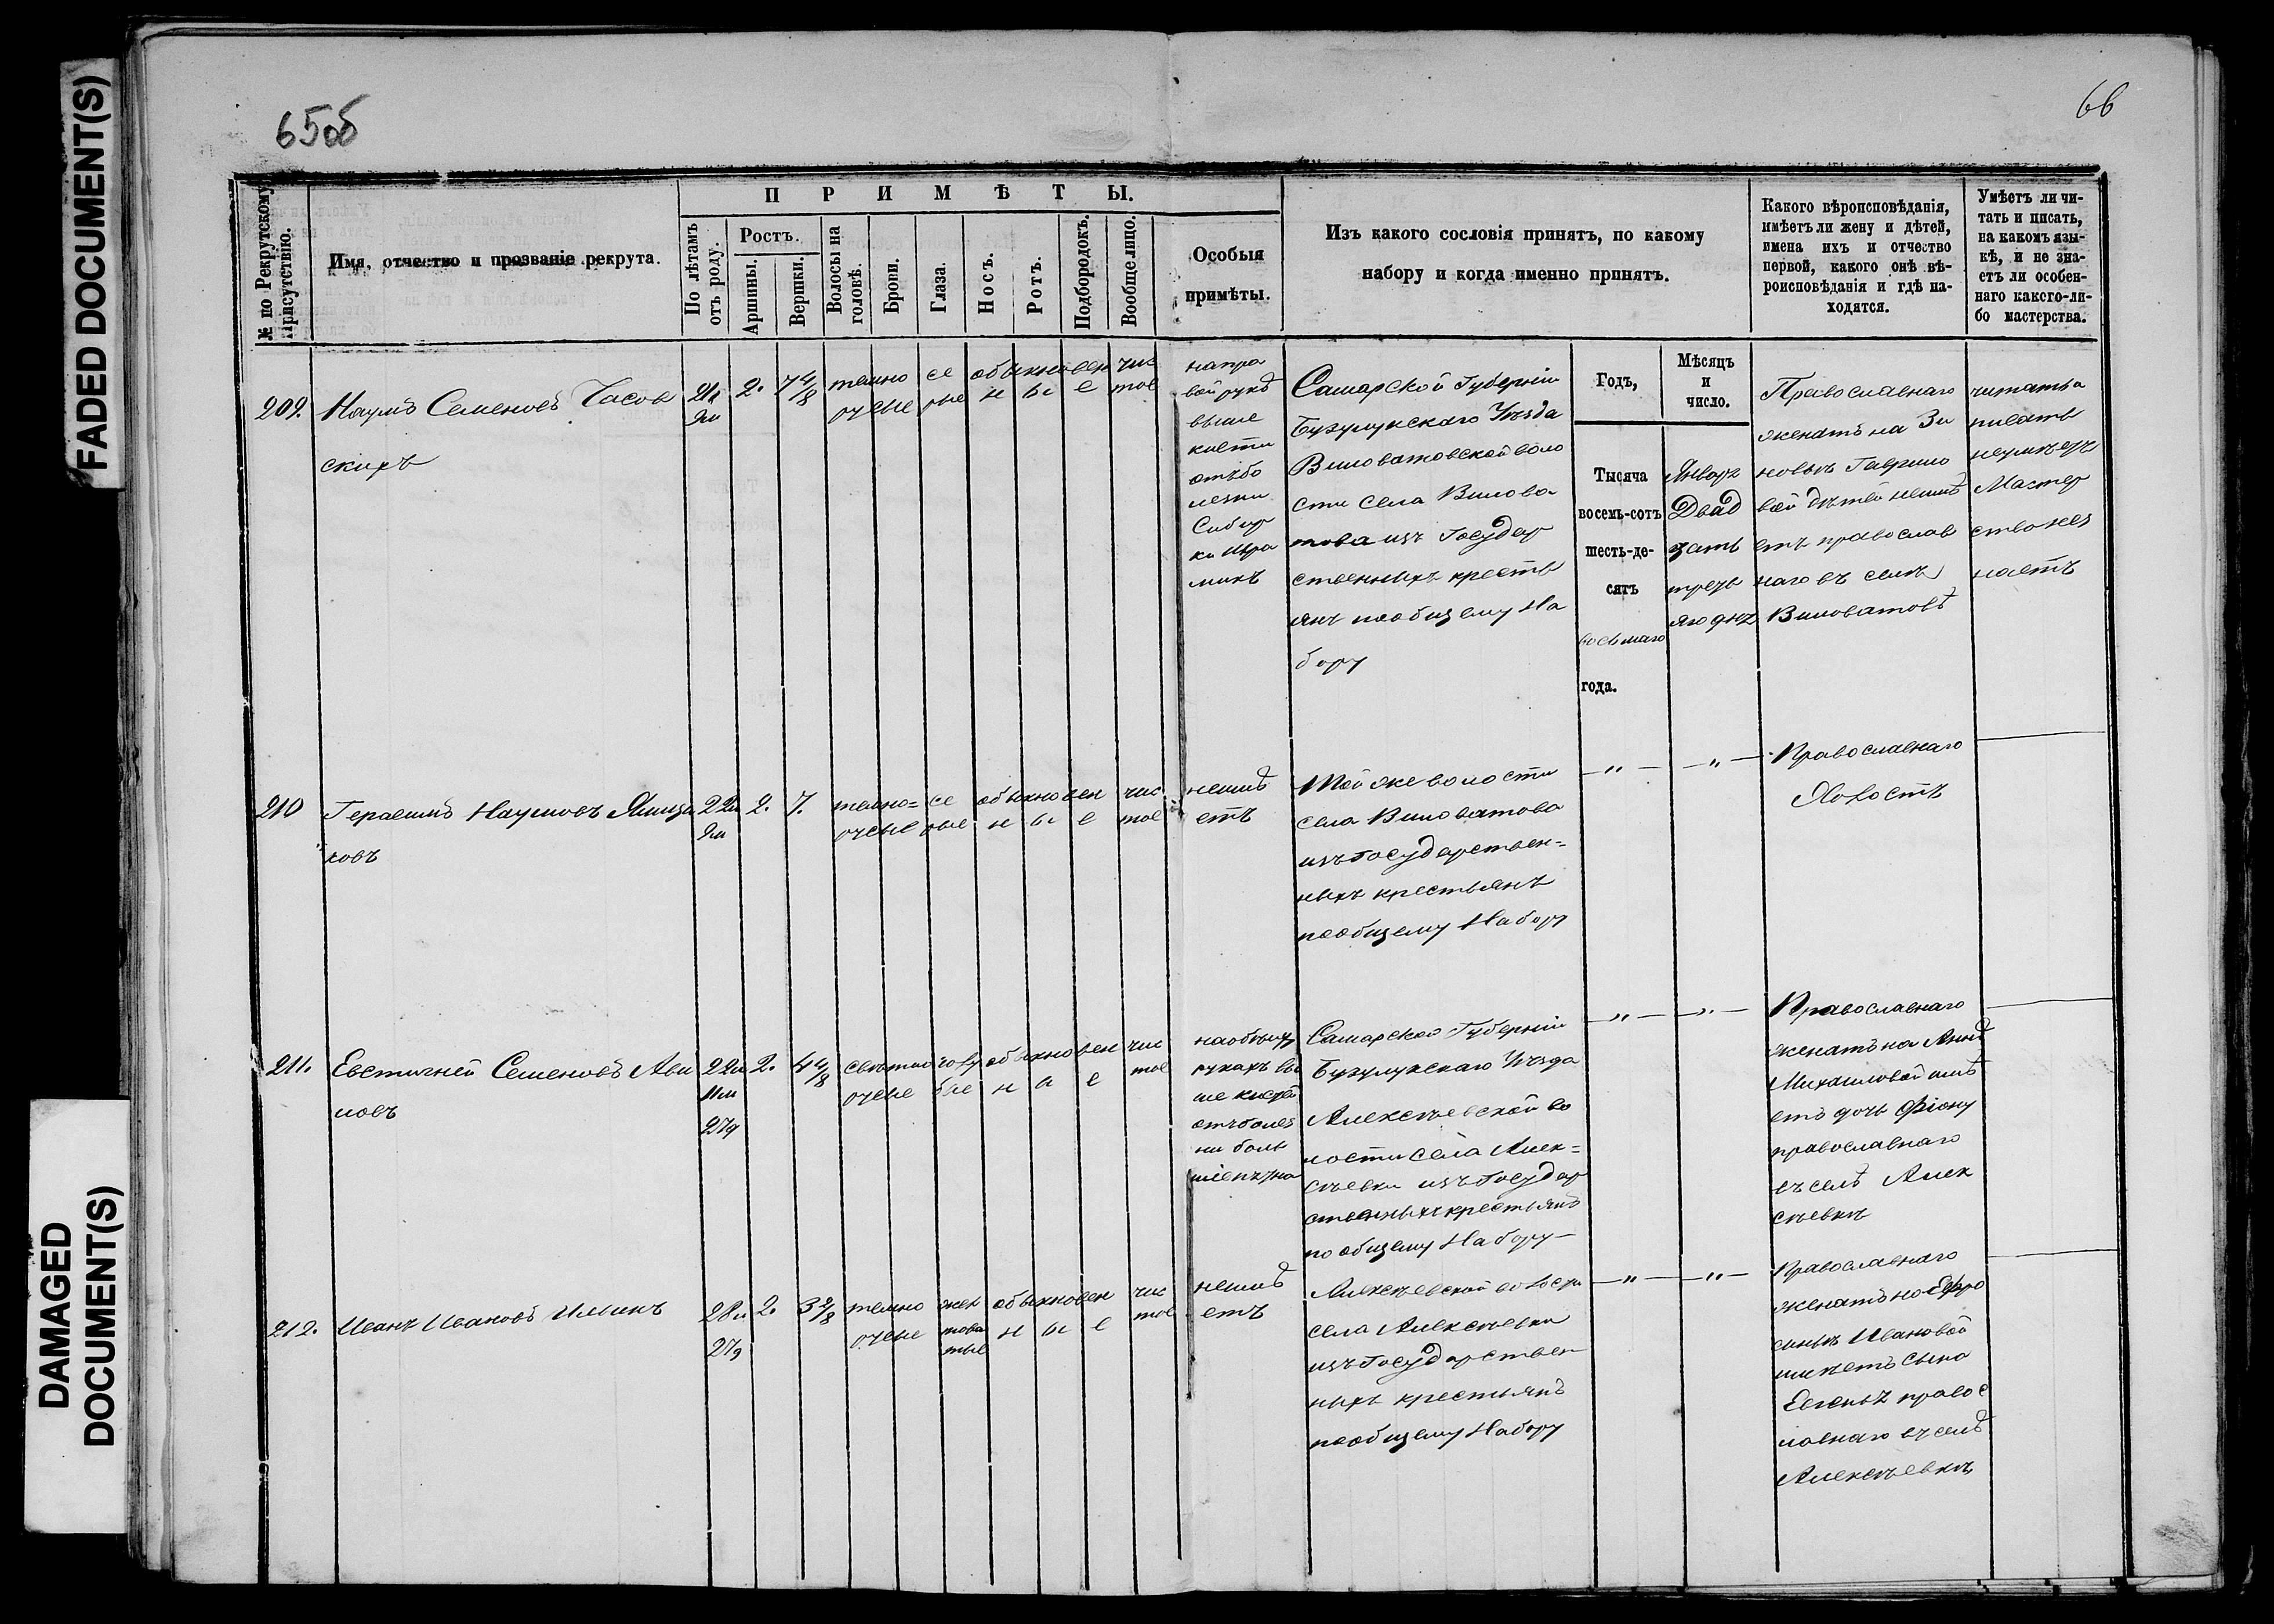 FADED DOCUMENT(S)
DAMAGED
DOCUMENT(S)
65об
66
№ по Рекрутскому
Присутствію.
Имя, отчество и прозваніе рекрута.
ПРИМѢТЫ.
По лѣтамъ
отъ роду.
Ростъ.
Аршины.
Вершки.
Волосы на
головѣ.
Брови.
Глаза.
Носъ.
Ротъ.
Подбородокъ.
Вообще лицо.
Особыя
примѣты.
Изъ какого сословія принятъ, по какому
набору и когда именно принятъ.
Какого вѣроисповѣданія,
имѣетъ ли жену и дѣтей,
имена ихъ и отчество
первой, какого онѣ вѣ-
роисповѣданія и гдѣ на-
ходятся.
Умѣетъ ли чи-
тать и писать,
на какомъ язы-
кѣ, и не зна-
етъ ли особен-
наго какого-ли-
бо мастерства.
209.
Наумъ Семеновъ Часов
скихъ
21л
9м
2.
7 4/8
темно
русые
се
рые
обыкновен
н ы е
чис
тое
направой рукѣ
выше
кисти
отъ бо
лезни
Сибир
ки шра
микъ
Самарской Губерніи
Бузулукскаго Уѣзда
Виловатовской воло
сти села Вилова
това изъ Государ
ственныхъ кресть
янъ пообщему На
бору
Годъ,
Тысяча
восемь-сотъ
шесть-де-
сятъ
восьмаго
года.
Мѣсяцъ
и
число.
Январь
Двад
цать
треть
яго дня
Православнаго
женатъ на Зи
новьѣ Гаврило
вой дѣтей неимѣ
етъ православ
наго въ селѣ
Виловатовѣ
читать и
писать
неумѣетъ
Мастер
ство нез
наетъ
210
Герасимъ Наумовъ Ямщи
ковъ
22л
9м
2.
7.
темно=
русые
се
рые
обыкновен
н ы е
чис
тое
неимѣ
етъ
Той же волости
села Виловатова
изъ Государствен=
ныхъ крестьянъ
пообщему Набору
— „ — „ —
Православнаго
Холостъ
211.
Евстигней Семеновъ Ави
ловъ
22л
11м
27д
2.
4 4/8
свѣтло
русые
голу
бые
обыкновен
н ы е
чис
тое
наобѣихъ
рукахъ вы
ше кистей
отъ болез
ни боль
Самарской Губерніи
Бузулукскаго Уѣзда
Алексѣевской во
лости села Алек=
сѣевки изъ Государ
ственныхъ крестьянъ
по общему Набору —
— „ — „ —
Православнаго
женатъ на Аннѣ
Михайловой имѣ
етъ дочь Фіону
православнаго
въ селѣ Алек
сѣевкѣ
212.
Иванъ Ивановъ Ильинъ
28л
27д
2.
3 2/8
темно
русые
жел
това
тые
обыкновен
н ы е
чис
тое
неимѣ
етъ
Алексѣевской волости
села Алексѣевки
изъ Государствен
ныхъ крестьянъ
пообщему Набору
— „ — „ —
Православнаго
женатъ на Ефро
синьѣ Ивановой
имѣетъ сына
правос
лавнаго въ селѣ
Алексѣевкѣ